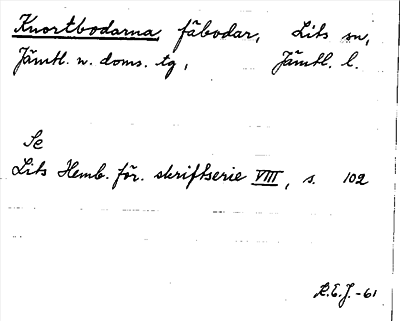 Knortbodarna fäbodar, Lits sn,
Jämtl. n. doms. tg, Jämtl. l.
Se
Lits Hemb. för. skriftserie VIII, s. 102
R.E.J. -61